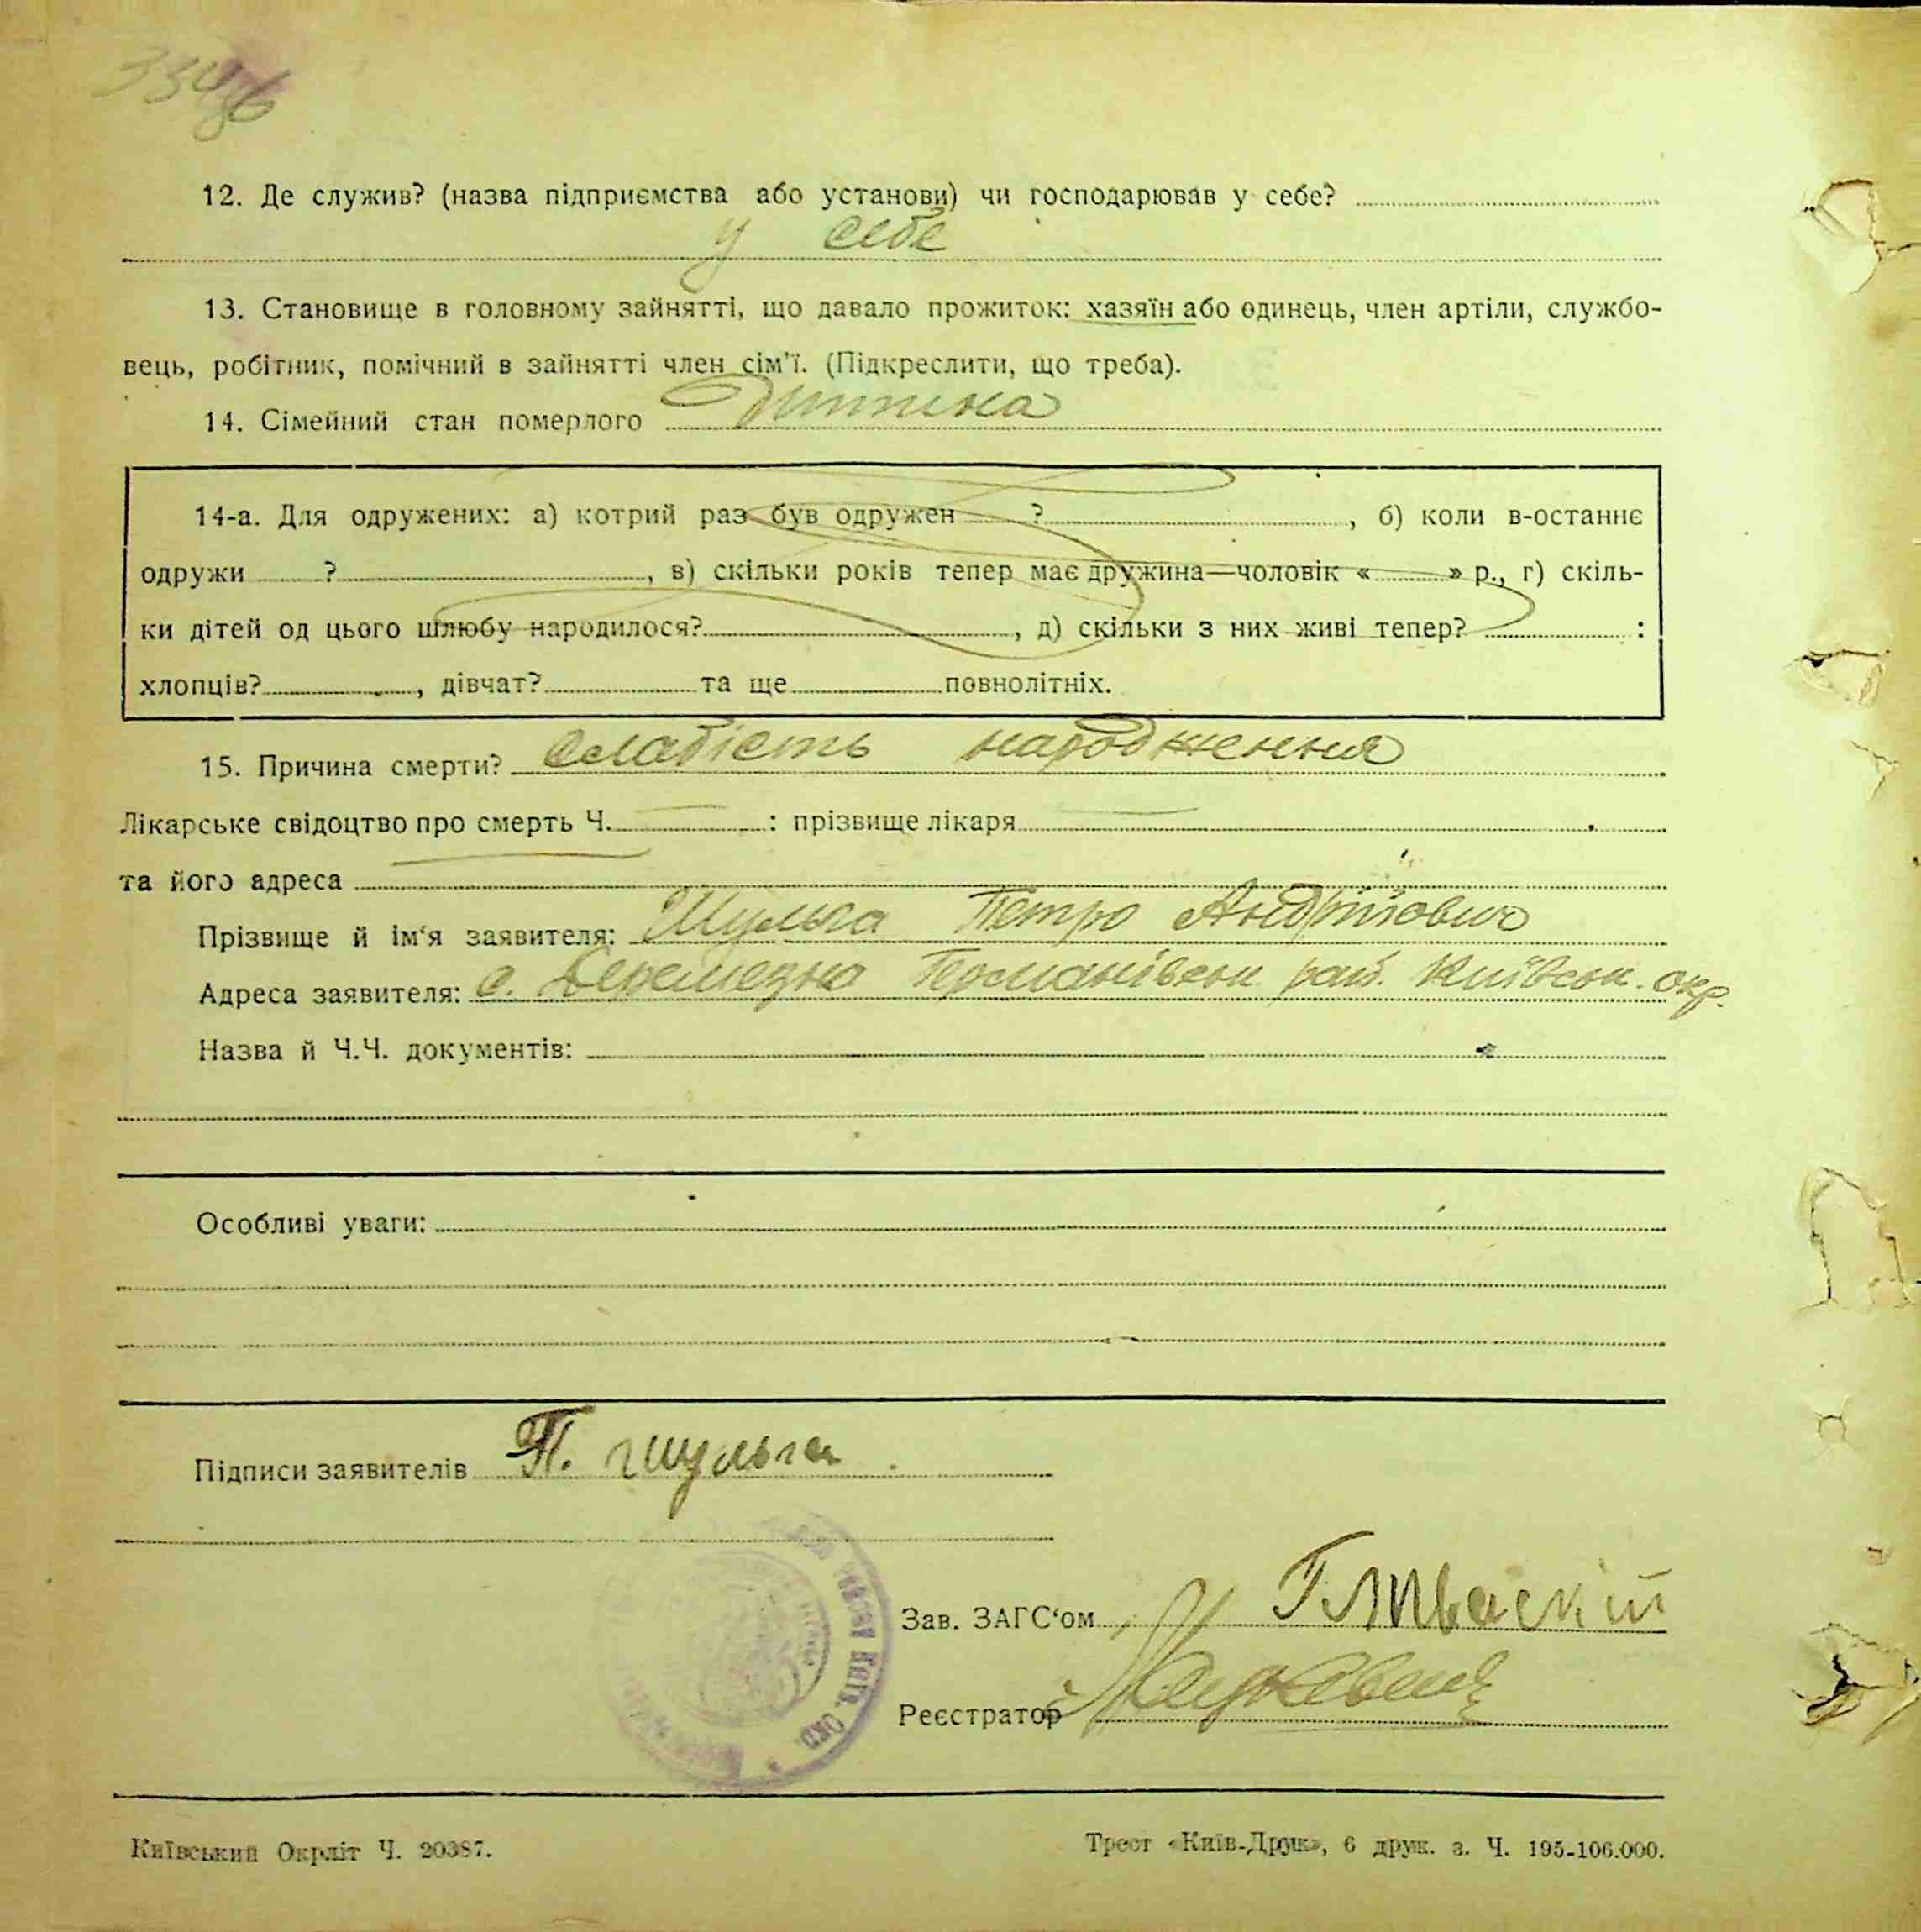 12. Де служив? (назва підприємства або установи) чи господарював у себе?
у себе
13. Становище в головному зайнятті, що давало прожиток: хазяїн або одинець, член артіли, службо-
вець, робітник, помічний в зайнятті член сім'ї. (Підкреслити, що треба).
14. Сімейний стан померлого Дитина
14-а. Для одружених: а) котрий раз був одружен ?, б) коли в-останнє
одружи ?, в) скільки років тепер має дружина—чоловік « » р., г) скіль-
ки дітей од цього шлюбу народилося?, д) скільки з них живі тепер? :
хлопців?, дівчат? та ще повнолітніх.
15. Причина смерти? Слабість народження
Лікарське свідоцтво про смерть Ч. : прізвище лікаря
та його адреса
Прізвище й ім'я заявителя: Шульга Петро Андрійович
Адреса заявителя: с. Деремезна Германівськ. рай. Київськ. окр.
Назва й Ч.Ч. документів:
Особливі уваги:
Підписи заявителів П. Шульга
Зав. ЗАГС'ом
Реєстратор
Київський Окрліт Ч. 20387.
Трест «Київ-Друк», 6 друк. з. Ч. 195-106.000.